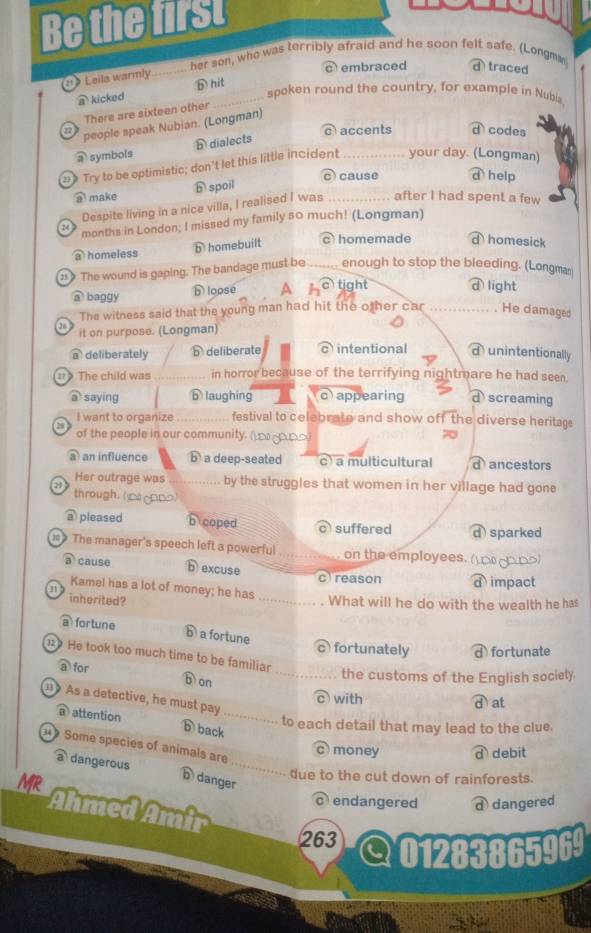 Be the first
21 Leila warmly .......... her son, who was terribly afraid and he soon felt safe. (Longman)
a kicked b hit c embraced d traced
22 There are sixteen other ............ spoken round the country, for example in Nubia,
people speak Nubian. (Longman)
a symbols b dialects c accents d codes
23 Try to be optimistic; don't let this little incident .............. your day. (Longman)
a make b spoil c cause d help
24 Despite living in a nice villa, I realised I was .............. after I had spent a few
months in London; I missed my family so much! (Longman)
a homeless b homebuilt c homemade d homesick
25 The wound is gaping. The bandage must be ....... enough to stop the bleeding. (Longman)
a baggy b loose c tight d light
26 The witness said that the young man had hit the other car .............. . He damaged
it on purpose. (Longman)
a deliberately b deliberate c intentional d unintentionally
27 The child was ............. in horror because of the terrifying nightmare he had seen.
a saying b laughing c appearing d screaming
28 I want to organize ............. festival to celebrate and show off the diverse heritage
of the people in our community.
a an influence b a deep-seated c a multicultural d ancestors
29 Her outrage was ............. by the struggles that women in her village had gone
through.
a pleased b coped c suffered d sparked
30 The manager's speech left a powerful .............. on the employees.
a cause b excuse c reason d impact
31 Kamel has a lot of money; he has .............. . What will he do with the wealth he has
inherited?
a fortune b a fortune c fortunately d fortunate
32 He took too much time to be familiar .............. the customs of the English society.
a for b on c with d at
33 As a detective, he must pay .............. to each detail that may lead to the clue.
a attention b back c money d debit
34 Some species of animals are .............. due to the cut down of rainforests.
a dangerous b danger c endangered d dangered
MR
Ahmed Amir
263
01283865969